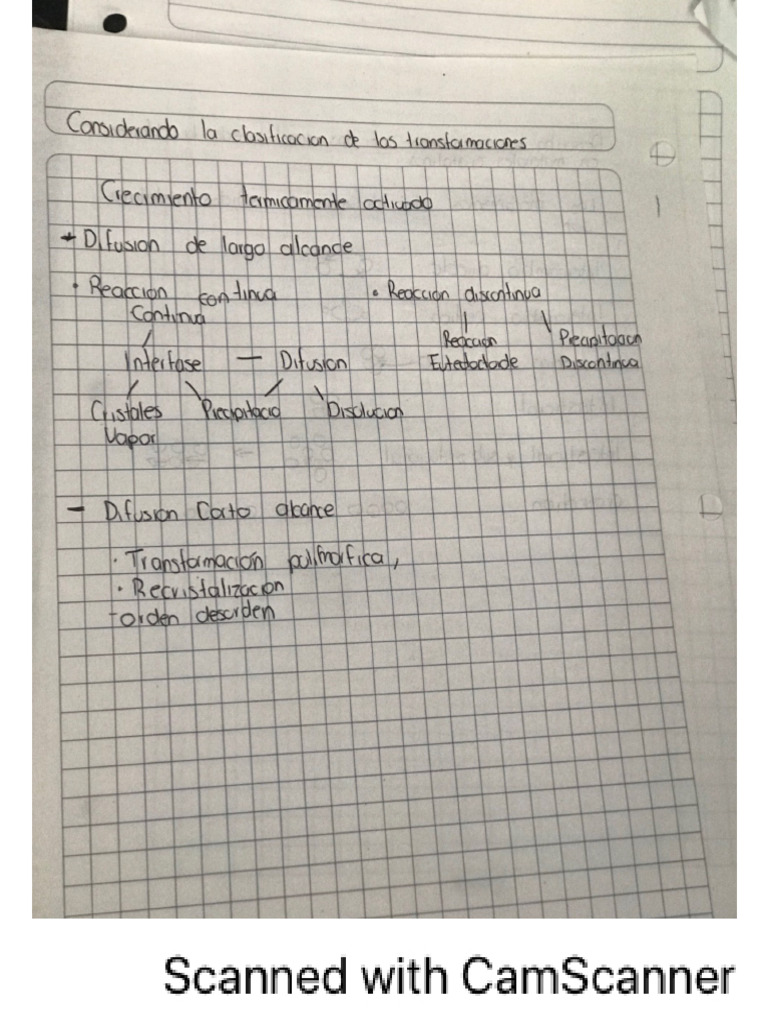 Considerando la clasificacion de las transformaciones
Crecimiento termicamente activado
Difusion de largo alcance
• Reaccion continua • Reaccion discontinua
Continua
Reaccion Precipitacion
Interfase — Difusion Eutectoide Discontinua
Cristales Precipitacio Disolucion
Vapor
- Difusion Corto alcance
· Transformacion polimorfica,
· Recristalizacion
- orden desorden
Scanned with CamScanner